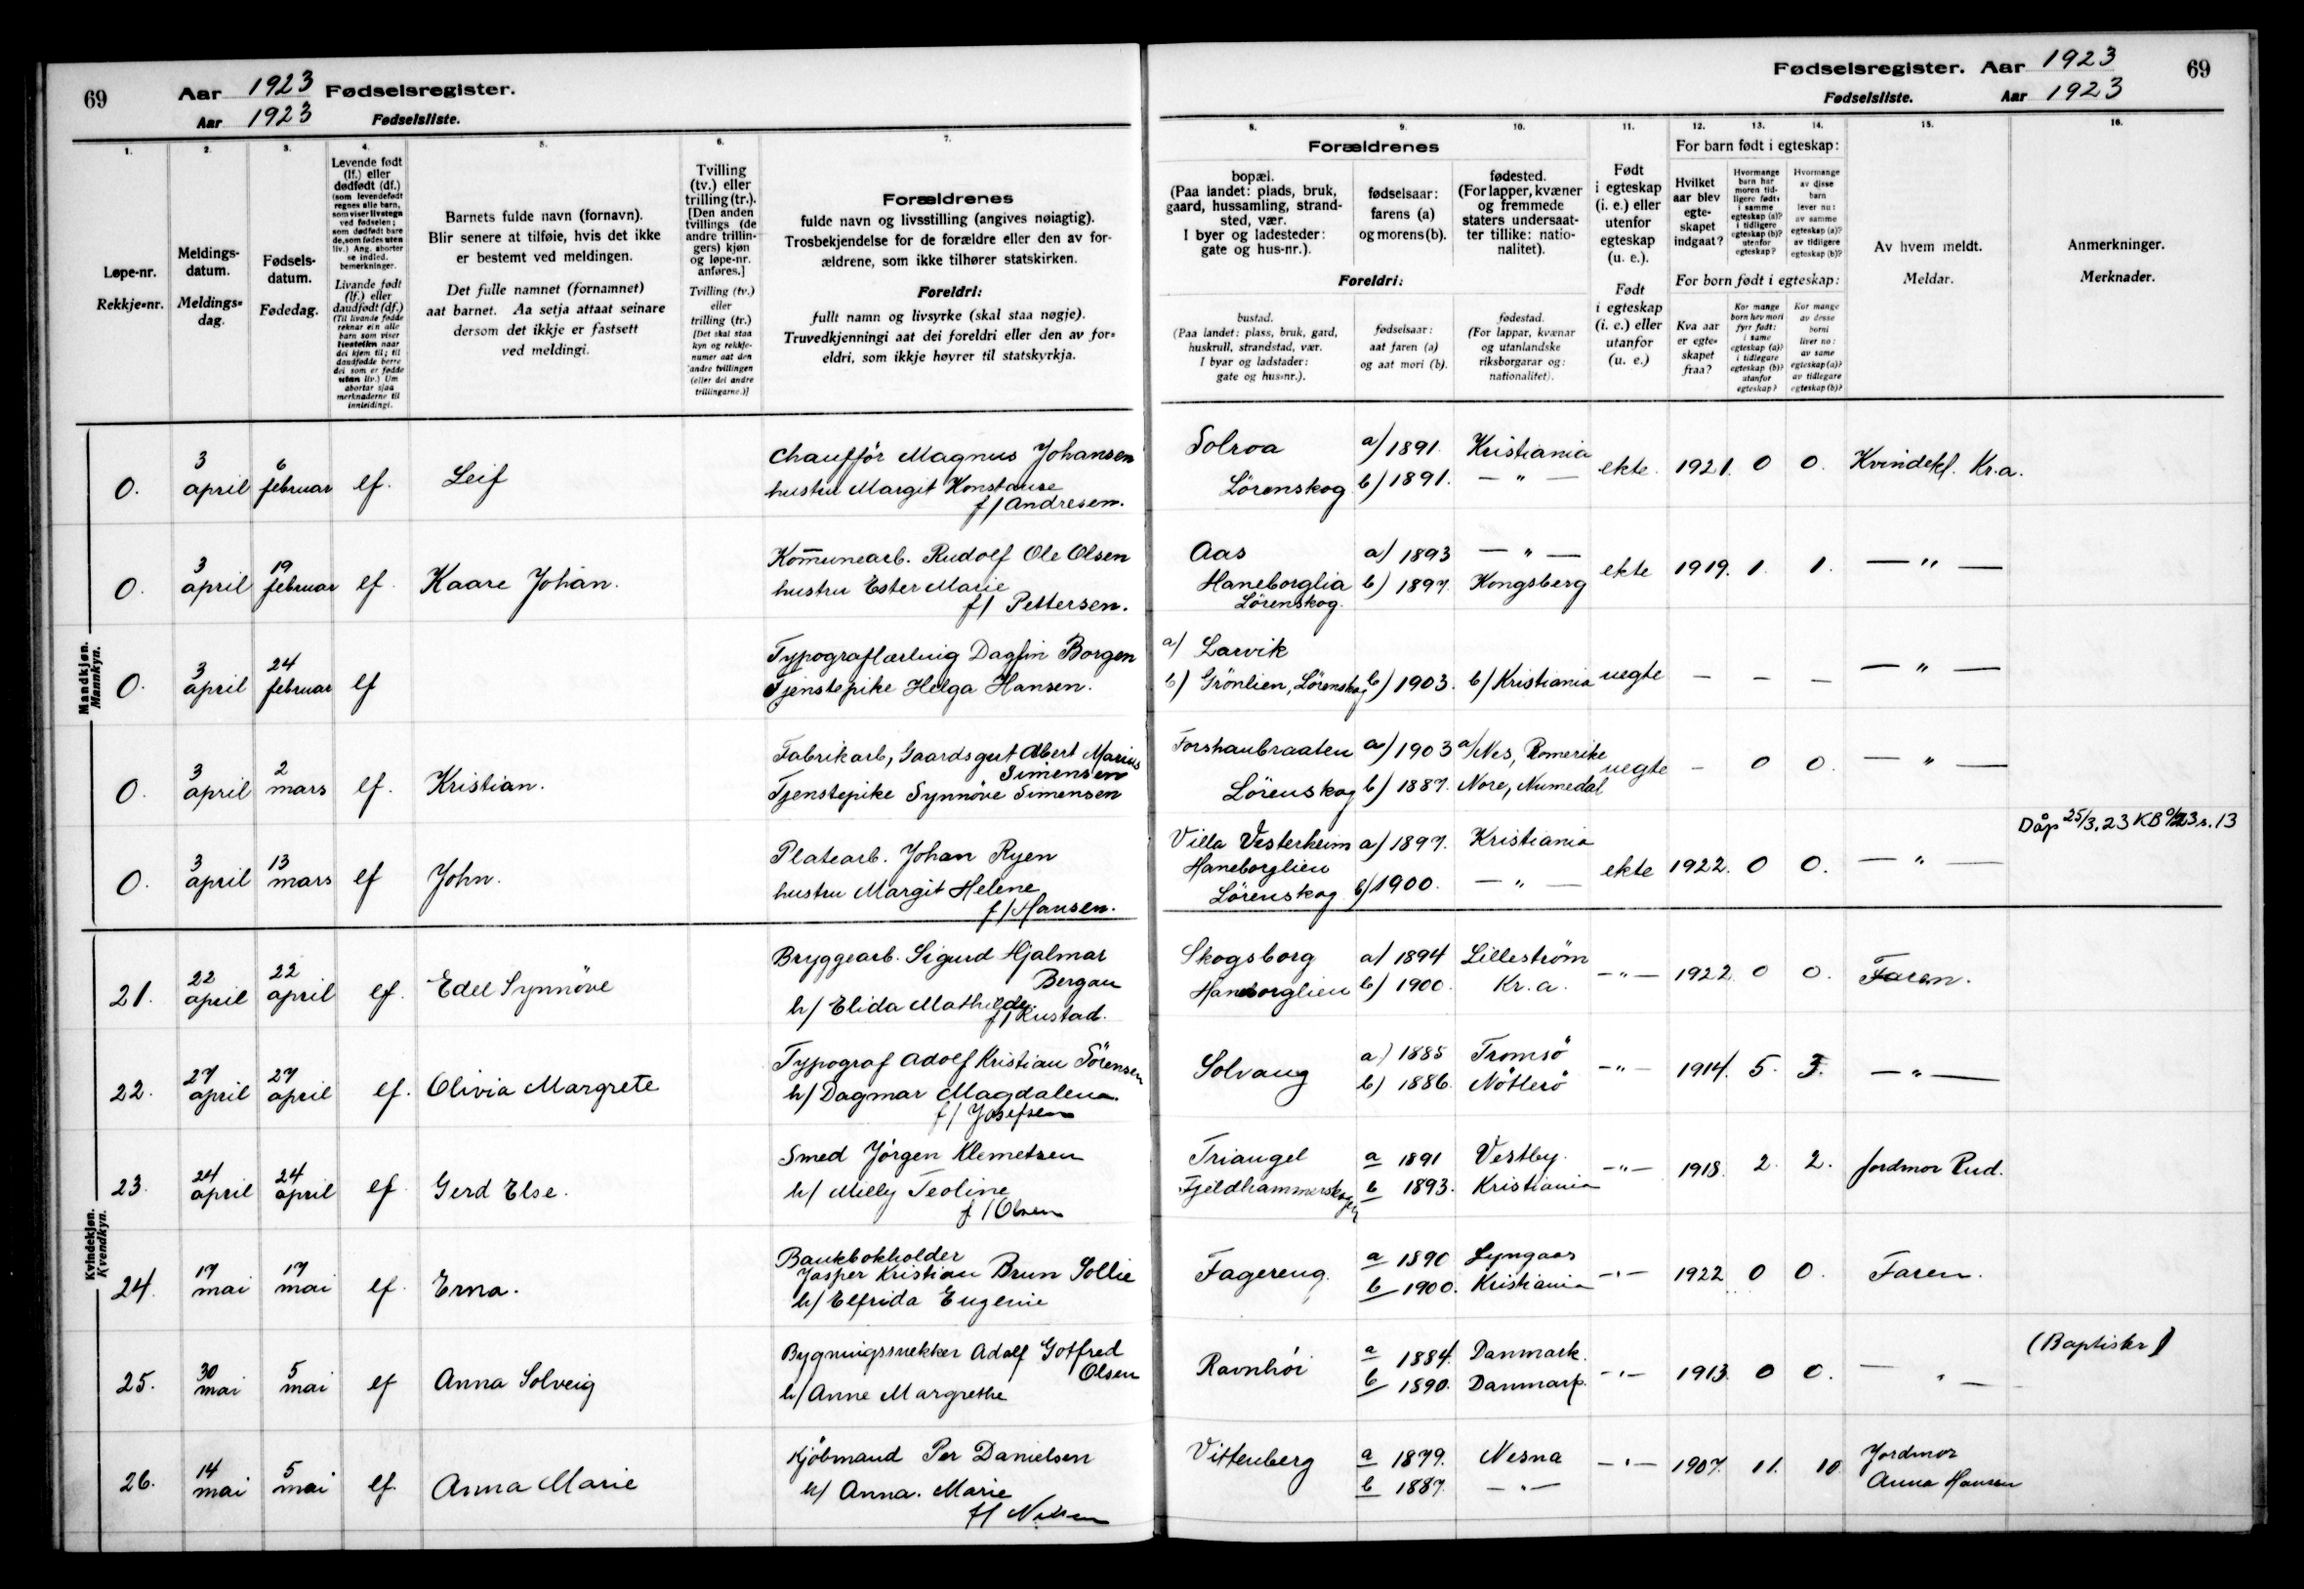 69
Aar 1923 Fødselsregister.
Aar 1923 Fødselsliste.
1. 2. 3. 4. 5. 6. 7.
Løpe-nr.
Rekkje-nr.
Meldings-
datum.
Meldings-
dag.
Fødsels-
datum.
Fødedag.
Levende født
(lf.) eller
dødfødt (df.)
(som levendefødt
regnes alle barn,
som viser livstegn
ved fødselen;
som dødfødt bare
de, som fødes uten
liv.) Ang. aborter
se indled.
bemerkninger.
Livande født
(lf.) eller
daudfødt (df.)
(Til livande fødde
reknar ein alle
barn som viser
livsteikn naar
dei kjem til; til
daudfødde berre
dei som er fødde
utan liv.) Um
abortar sjaa
merknaderne til
innleidingi.
Barnets fulde navn (fornavn).
Blir senere at tilføie, hvis det ikke
er bestemt ved meldingen.
Det fulle namnet (fornamnet)
aat barnet. Aa setja attaat seinare
dersom det ikkje er fastsett
ved meldingi.
Tvilling
(tv.) eller
trilling (tr.).
[Den anden
tvillings (de
andre trillin-
gers) kjøn
og løpe-nr.
anføres.]
Tvilling (tv.)
eller
trilling (tr.)
[Det skal staa
kyn og rekkje-
numer aat den
andre tvillingen
(eller dei andre
trillingarne.)]
Forældrenes
fulde navn og livsstilling (angives nøiagtig).
Trosbekjendelse for de forældre eller den av for-
ældrene, som ikke tilhører statskirken.
Foreldri:
fullt namn og livsyrke (skal staa nøgje).
Truvedkjenningi aat dei foreldri eller den av for-
eldri, som ikkje høyrer til statskyrkja.
Mandkjøn.
Mannkyn.
0. 3 april 6 februar lf. Leif
Chaufför Magnus Johansen
hustru Margit Konstanse
f/ Andresen.
0. 3 april 19 februar lf. Kaare Johan.
Kommunearb. Rudolf Ole Olsen
hustru Ester Marie
f/ Pettersen.
0. 3 april 24 februar lf
Typograflærling Dagfin Borgen
Tjenstepike Helga Hansen.
0. 3 april 2 mars lf. Kristian.
Fabrikarb, Gaardsgut Albert Marius
Simensen
Tjenstepike Synnöve Simensen
0. 3 april 13 mars lf John.
Platearb. Johan Ryen
hustru Margit Helene
f/ Hansen.
Kvindekjøn.
Kvendkyn.
21. 22 april 22 april lf. Edel Synnöve
Bryggearb. Sigurd Hjalmar
Bergan
h/ Elida Mathilde
f/ Rustad.
22. 27 april 27 april lf. Olivia Margrete
Typograf Adolf Kristian Sörensen
h/ Dagmar Magdalena
f/ Josefsen
23. 24 april 24 april lf Gerd Else.
Smed Jörgen Klemetsen
h/ Milly Teoline
f/ Olsen
24. 17 mai 17 mai lf. Erna.
Bankbokholder
Jasper Kristian Brun Sollie
h/ Elfrida Eugenie
25. 30 mai 5 mai lf Anna Solveig
Bygningssnekker Adolf Gotfred
Olsen
h/ Anne Margrethe
26. 14 mai 5 mai lf. Anna Marie
Kjöbmand Per Danielsen
h/ Anna. Marie
f/ Nilsen
Fødselsregister. Aar 1923 69
Fødselsliste. Aar 1923
8. 9. 10. 11. 12. 13. 14. 15. 16.
Forældrenes
bopæl.
(Paa landet: plads, bruk,
gaard, hussamling, strand-
sted, vær.
I byer og ladesteder:
gate og hus-nr.).
fødselsaar:
farens (a)
og morens (b).
fødested.
(For lapper, kvæner
og fremmede
staters undersaat-
ter tillike: natio-
nalitet).
Foreldri:
bustad.
(Paa landet: plass, bruk, gard,
huskrull, strandstad, vær.
I byar og ladstader:
gate og hus-nr.).
fødselsaar:
aat faren (a)
og aat mori (b).
fødestad.
(For lappar, kvænar
og utanlandske
riksborgarar og:
nationalitet).
Født
i egteskap
(i. e.) eller
utenfor
egteskap
(u. e.).
Født
i egteskap
(i. e.) eller
utanfor
(u. e.)
For barn født i egteskap:
Hvilket
aar blev
egte-
skapet
indgaat?
Hvormange
barn har
moren tid-
ligere født:
i samme
egteskap (a)?
i tidligere
egteskap (b)?
utenfor
egteskap?
Hvormange
av disse
barn
lever nu:
av samme
egteskap (a)?
av tidligere
egteskap (b)?
For born født i egteskap:
Kva aar
er egte-
skapet
fraa?
Kor mange
born hev mori
fyrr født:
i same
egteskap (a)?
i tidlegare
egteskap (b)?
utanfor
egteskap?
Kor mange
av desse
borni
liver no:
av same
egteskap (a)?
av tidlegare
egteskap (b)?
Av hvem meldt.
Meldar.
Anmerkninger.
Merknader.
Solroa a/ 1891. Kristiania ekte. 1921. 0 0. Kvindekl. Kr.a.
Lörenskog b/ 1891. — " —
Aas a/ 1893 — " — ekte 1919. 1. 1. — " —
Haneborglia b/ 1897. Kongsberg
Lörenskog.
a/ Larvik uegte — — — — " —
b/ Grönlien, Lörenskog b/ 1903. b/ Kristiania
Forshaubraaten a/ 1903 a/ Nes, Romerike uegte - 0 0. — " —
Lörenskog b/ 1887. Nore, Numedal
Villa Vesterheim a/ 1897. Kristiania ekte 1922. 0 0. — " — Dåp 25/3.23 KB s. 13
Haneborglien
Lörenskog. b/ 1900. — " —
Skogsborg a/ 1894 Lilleström — " — 1922. 0 0. Faren.
Haneborglien b/ 1900. Kr. a.
Solvang a) 1885 Tromsö — " — 1914. 5. 3. — " —
b) 1886. Nötterö
Triangel a 1891 Vestby. — " — 1918. 2. 2. Jordmor Rud.
Fjeldhammerskogen b 1893. Kristiania
Fagereng. a 1890 Lyngaas — " — 1922 0 0. Faren.
b 1900. Kristiania
Ravnhöi a 1884. Danmark. — " — 1913. 0 0. — " — (Baptister)
b 1890. Danmark.
Vittenberg a 1879. Nesna — " — 1907. 11. 10. Jordmor
b 1887. — " — Anna Hansen